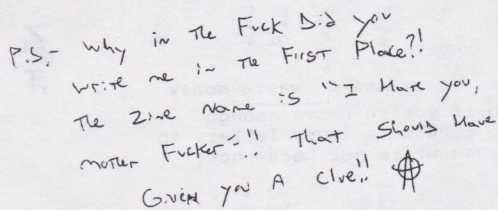 P.S.- Why in The Fuck Did you
write me in The First Place?!
The Zine Name is "I Hate you,
mother Fucker-!" That Should Have
Given you A Clue!!